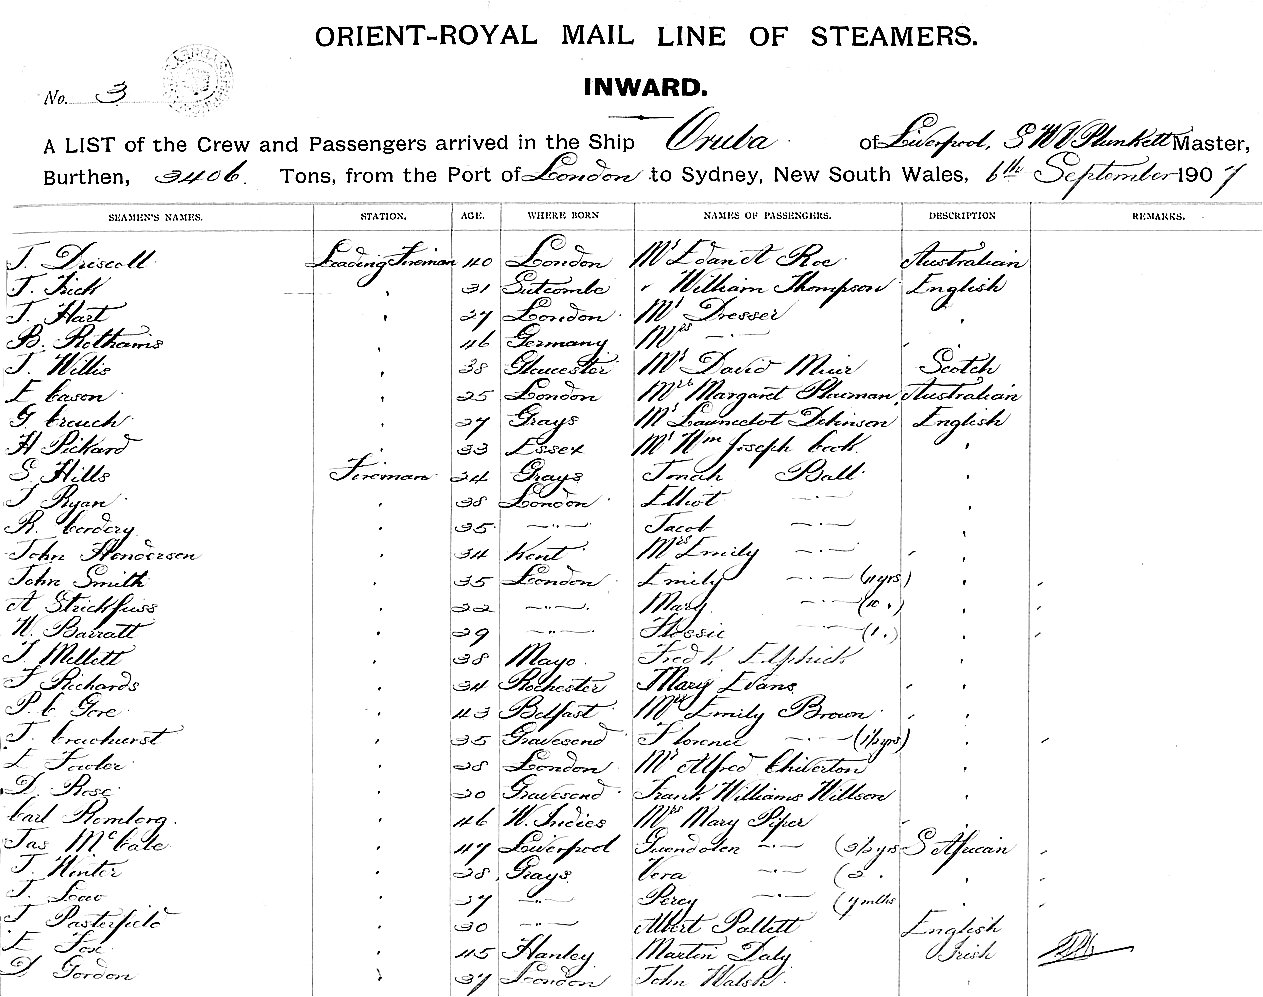 ORIENT-ROYAL MAIL LINE OF STEAMERS.
No. 3
INWARD.
A LIST of the Crew and Passengers arrived in the Ship Oruba of Liverpool, Plunkett Master,
Burthen, 3406 Tons, from the Port of London to Sydney, New South Wales, 6th September 1907
SEAMEN'S NAMES. STATION. AGE. WHERE BORN NAMES OF PASSENGERS. DESCRIPTION REMARKS.
J. Driscoll Leading Fireman 40 London Mr Roe Australian
31 Sutcombe " William Thompson English
J. Hart " 27 London Mr Dresser "
B. " 46 Germany Mrs —"— "
J. Willis " 38 Gloucester Mr David Muir Scotch
E Cason " 25 London Mrs Margaret Australian
G Crouch " 27 Grays Mr Launcelot English
H Pickard " 33 Essex Mr Wm Joseph Cook "
S. Hills Fireman 24 Grays Jonah Ball "
J Ryan " 38 London Elliot —"— "
R. Cordery " 35 —"— Jacob —"— "
John Henderson " 34 Kent Mrs Emily —"— "
John Smith " 35 London Emily —"— (11 yrs) "
A Strickfuss " 22 —"— Mary —"— (10 ") "
W. Barratt " 29 —"— Flossie —"— (1 ") "
J. Mellett " 38 Mayo Fredk Elphick "
J Richards " 34 Rochester Mary Evans "
P. C Gore " 43 Belfast Mrs Emily Brown "
J. Cruchurst " 35 Gravesend Florence —"— (1½ yrs) "
E Fowler " 28 London Mr Alfred Chiverton "
D. Rose " 20 Gravesend Frank Williams Willson "
Carl Romberg " 46 W. Indies Mrs Mary Piper "
Jas McCale " 47 Liverpool Gwendolen —"— (3½ yrs S African
J. Winter " 28 Grays Vera —"— (2 " "
J. Low " 37 —"— Percy —"— (7 mths "
J Pasterfield " 30 —"— Albert Pallett English
E Fox " 45 Hanley Martin Daly Irish
D Gordon " 37 London John Walsh "